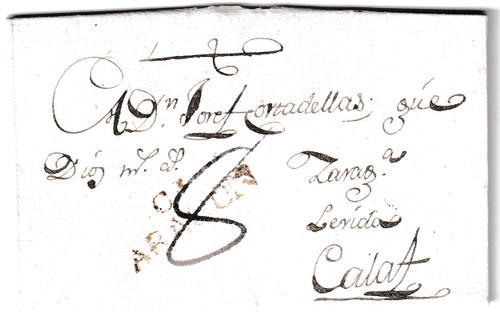 A Dn. Josef Cortadellas, güe
Dios ms. as. Zaragª
8 Lerida
Calaf